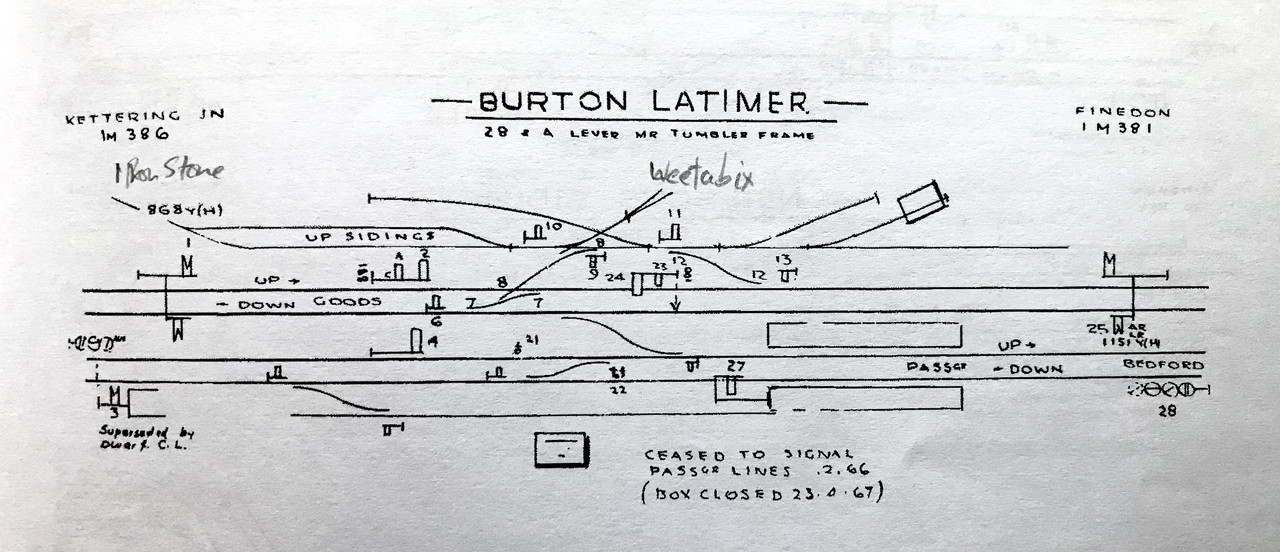 BURTON LATIMER.
28 & A LEVER MR TUMBLER FRAME
KETTERING JN
1M 386
FINEDON
1M 381
Iron Stone
Weetabix
868Y(H)
UP SIDINGS
10
8
9
11
12
12
13
1
A
2
C
8
24
23
8
UP →
← DOWN GOODS
6
7
7
4
21
22
25
1151Y(H)
UP →
PASSGR ← DOWN
BEDFORD
27
28
3
Superseded by
C. L.
CEASED TO SIGNAL
PASSGR LINES .2.66
(BOX CLOSED 23.4.67)